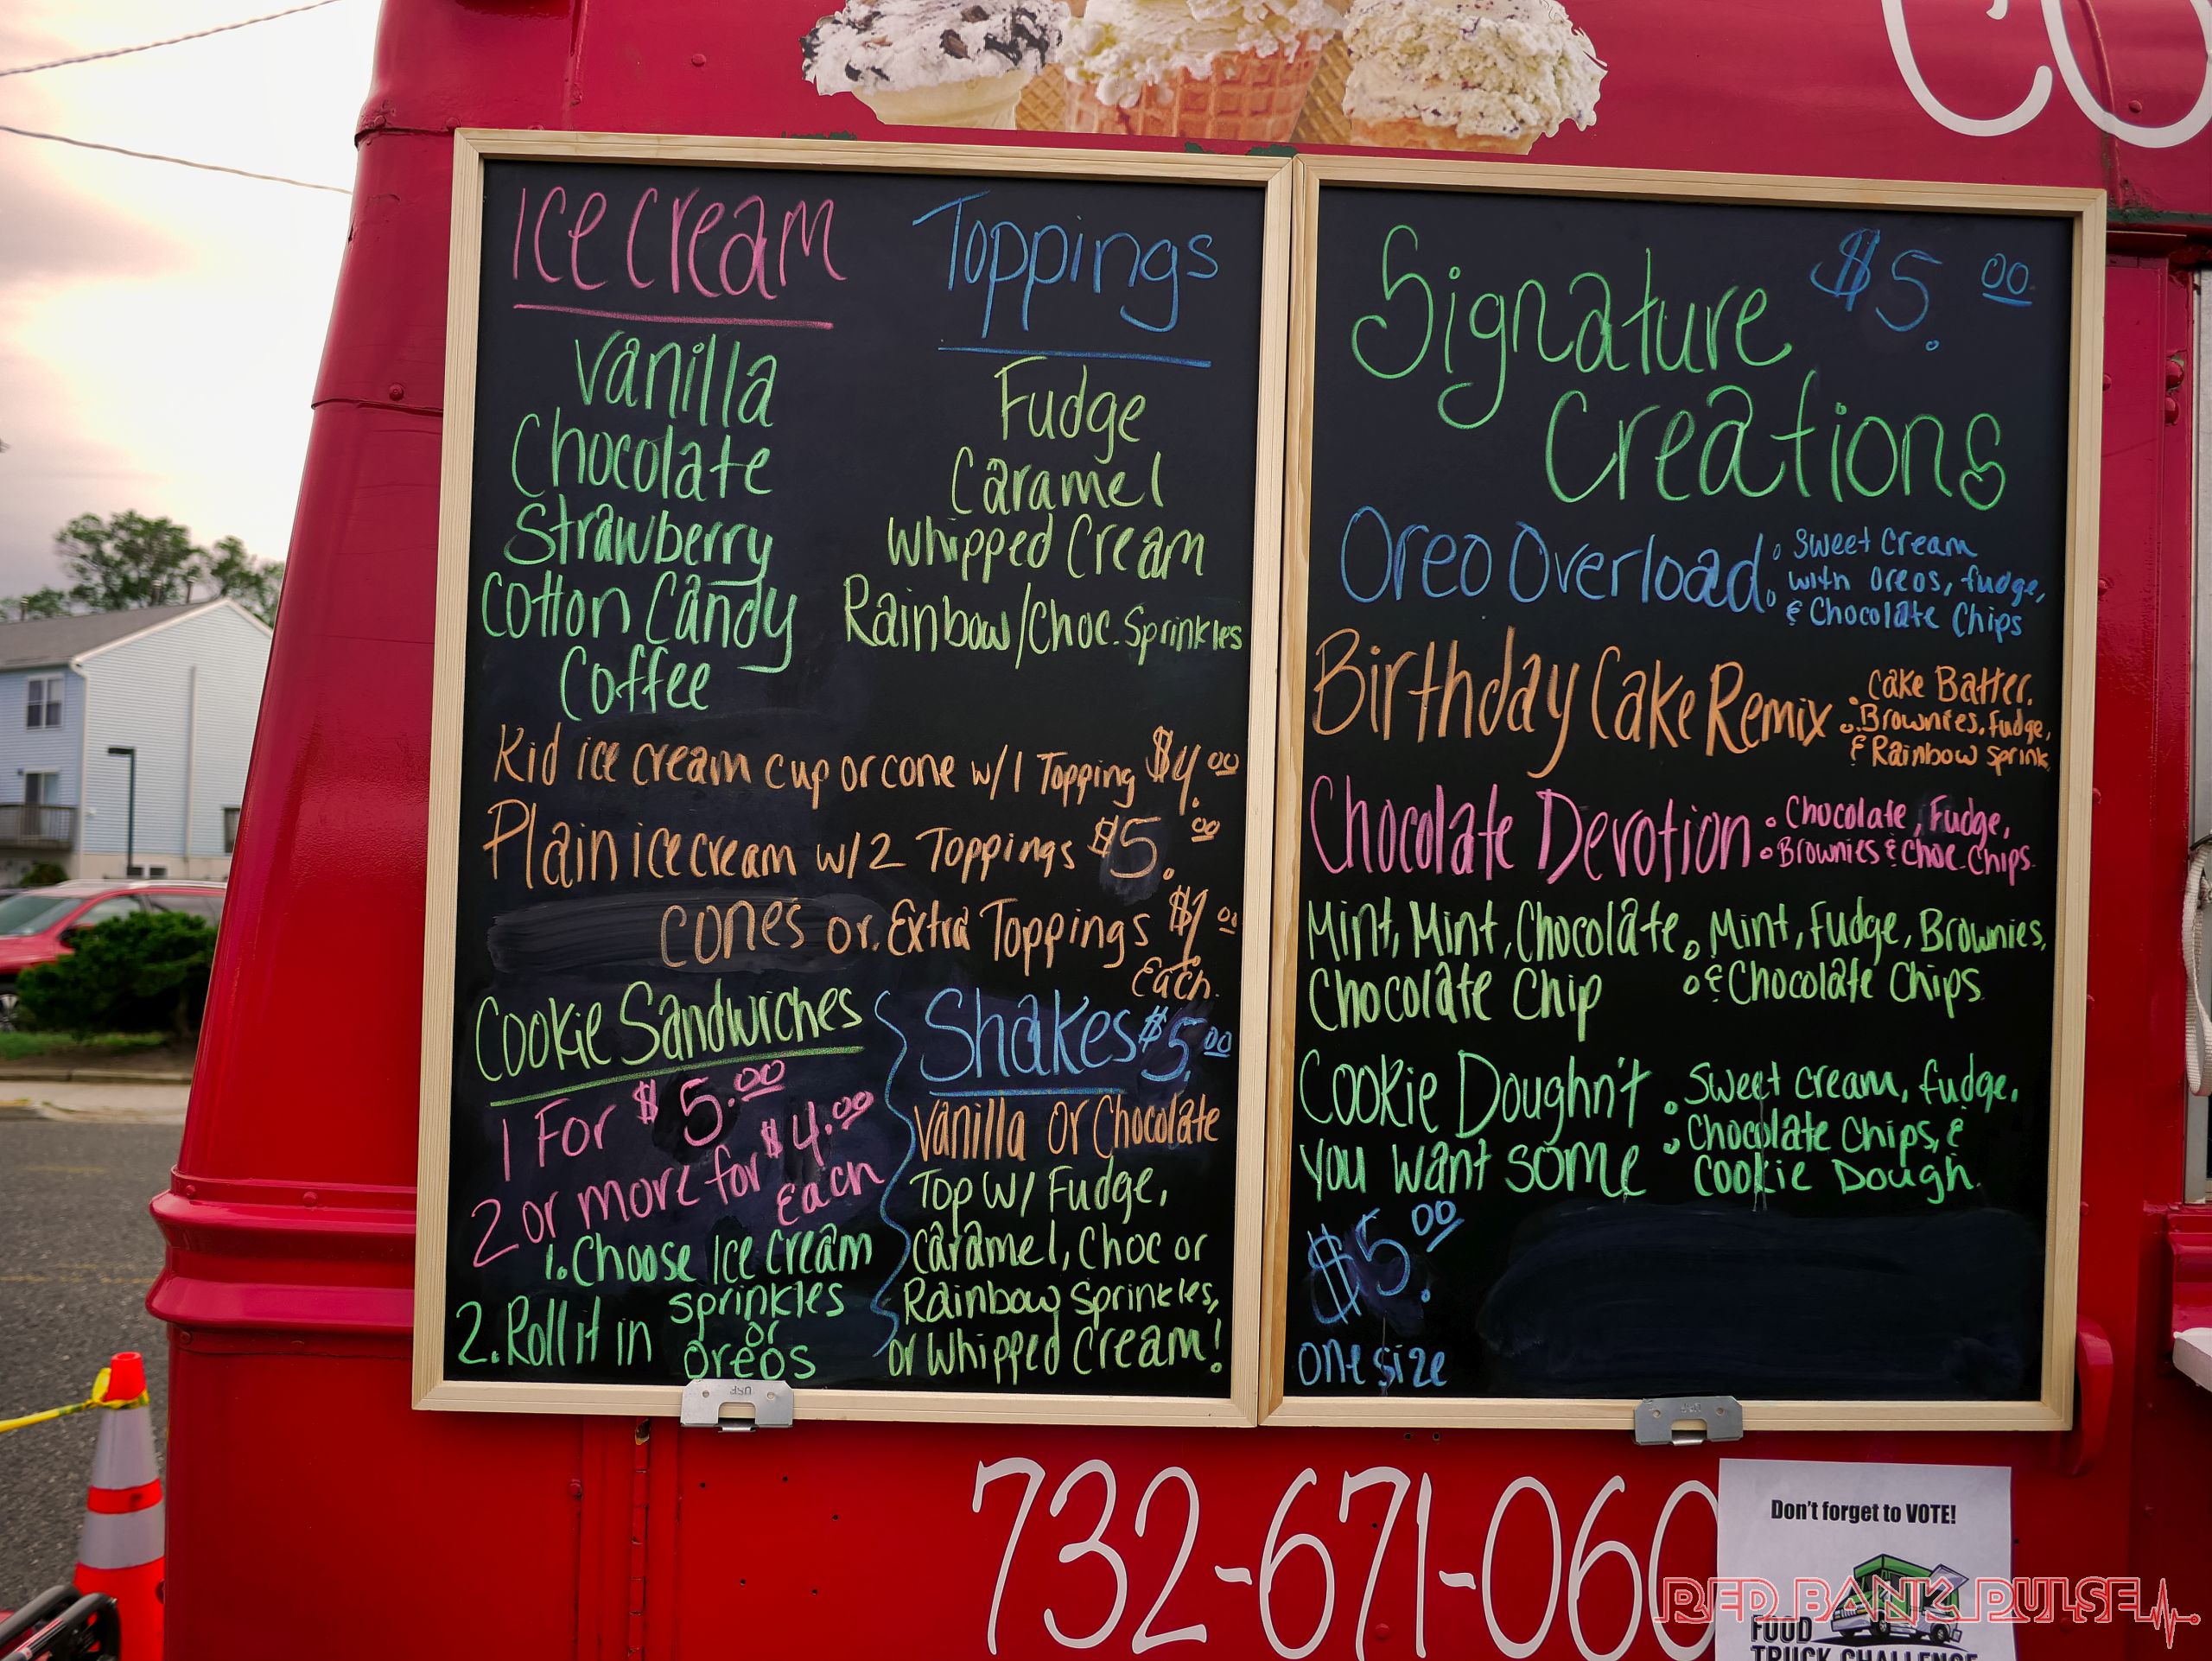 Ice Cream
Vanilla
Chocolate
Strawberry
Cotton Candy
Coffee
Toppings
Fudge
Caramel
Whipped Cream
Rainbow/Choc. Sprinkles
Kid ice cream cup or cone w/1 Topping $4.00
Plain ice cream w/2 Toppings $5.00
Cones or Extra Toppings $1.00
Each.
Cookie Sandwiches
1 For $5.00
2 or more for $4.00
Each
1. Choose Ice Cream
2. Roll it in sprinkles
or
oreos
Shakes $5.00
Vanilla or Chocolate
Top w/ Fudge,
Caramel, Choc or
Rainbow Sprinkles,
or Whipped Cream!
Signature $5.00
Creations
Oreo Overload: Sweet Cream
with oreos, fudge,
& Chocolate Chips
Birthday Cake Remix: Cake Batter,
Brownies, Fudge,
& Rainbow Sprink
Chocolate Devotion: Chocolate, Fudge,
Brownies & Choc. Chips.
Mint, Mint, Chocolate,
Chocolate Chip
: Mint, Fudge, Brownies,
& Chocolate Chips
Cookie Doughn't
you want some
: Sweet Cream, fudge,
Chocolate Chips, &
Cookie Dough.
$5.00
one size
732-671-060
Don't forget to VOTE!
FOOD
TRUCK CHALLENGE
RED BANK PULSE